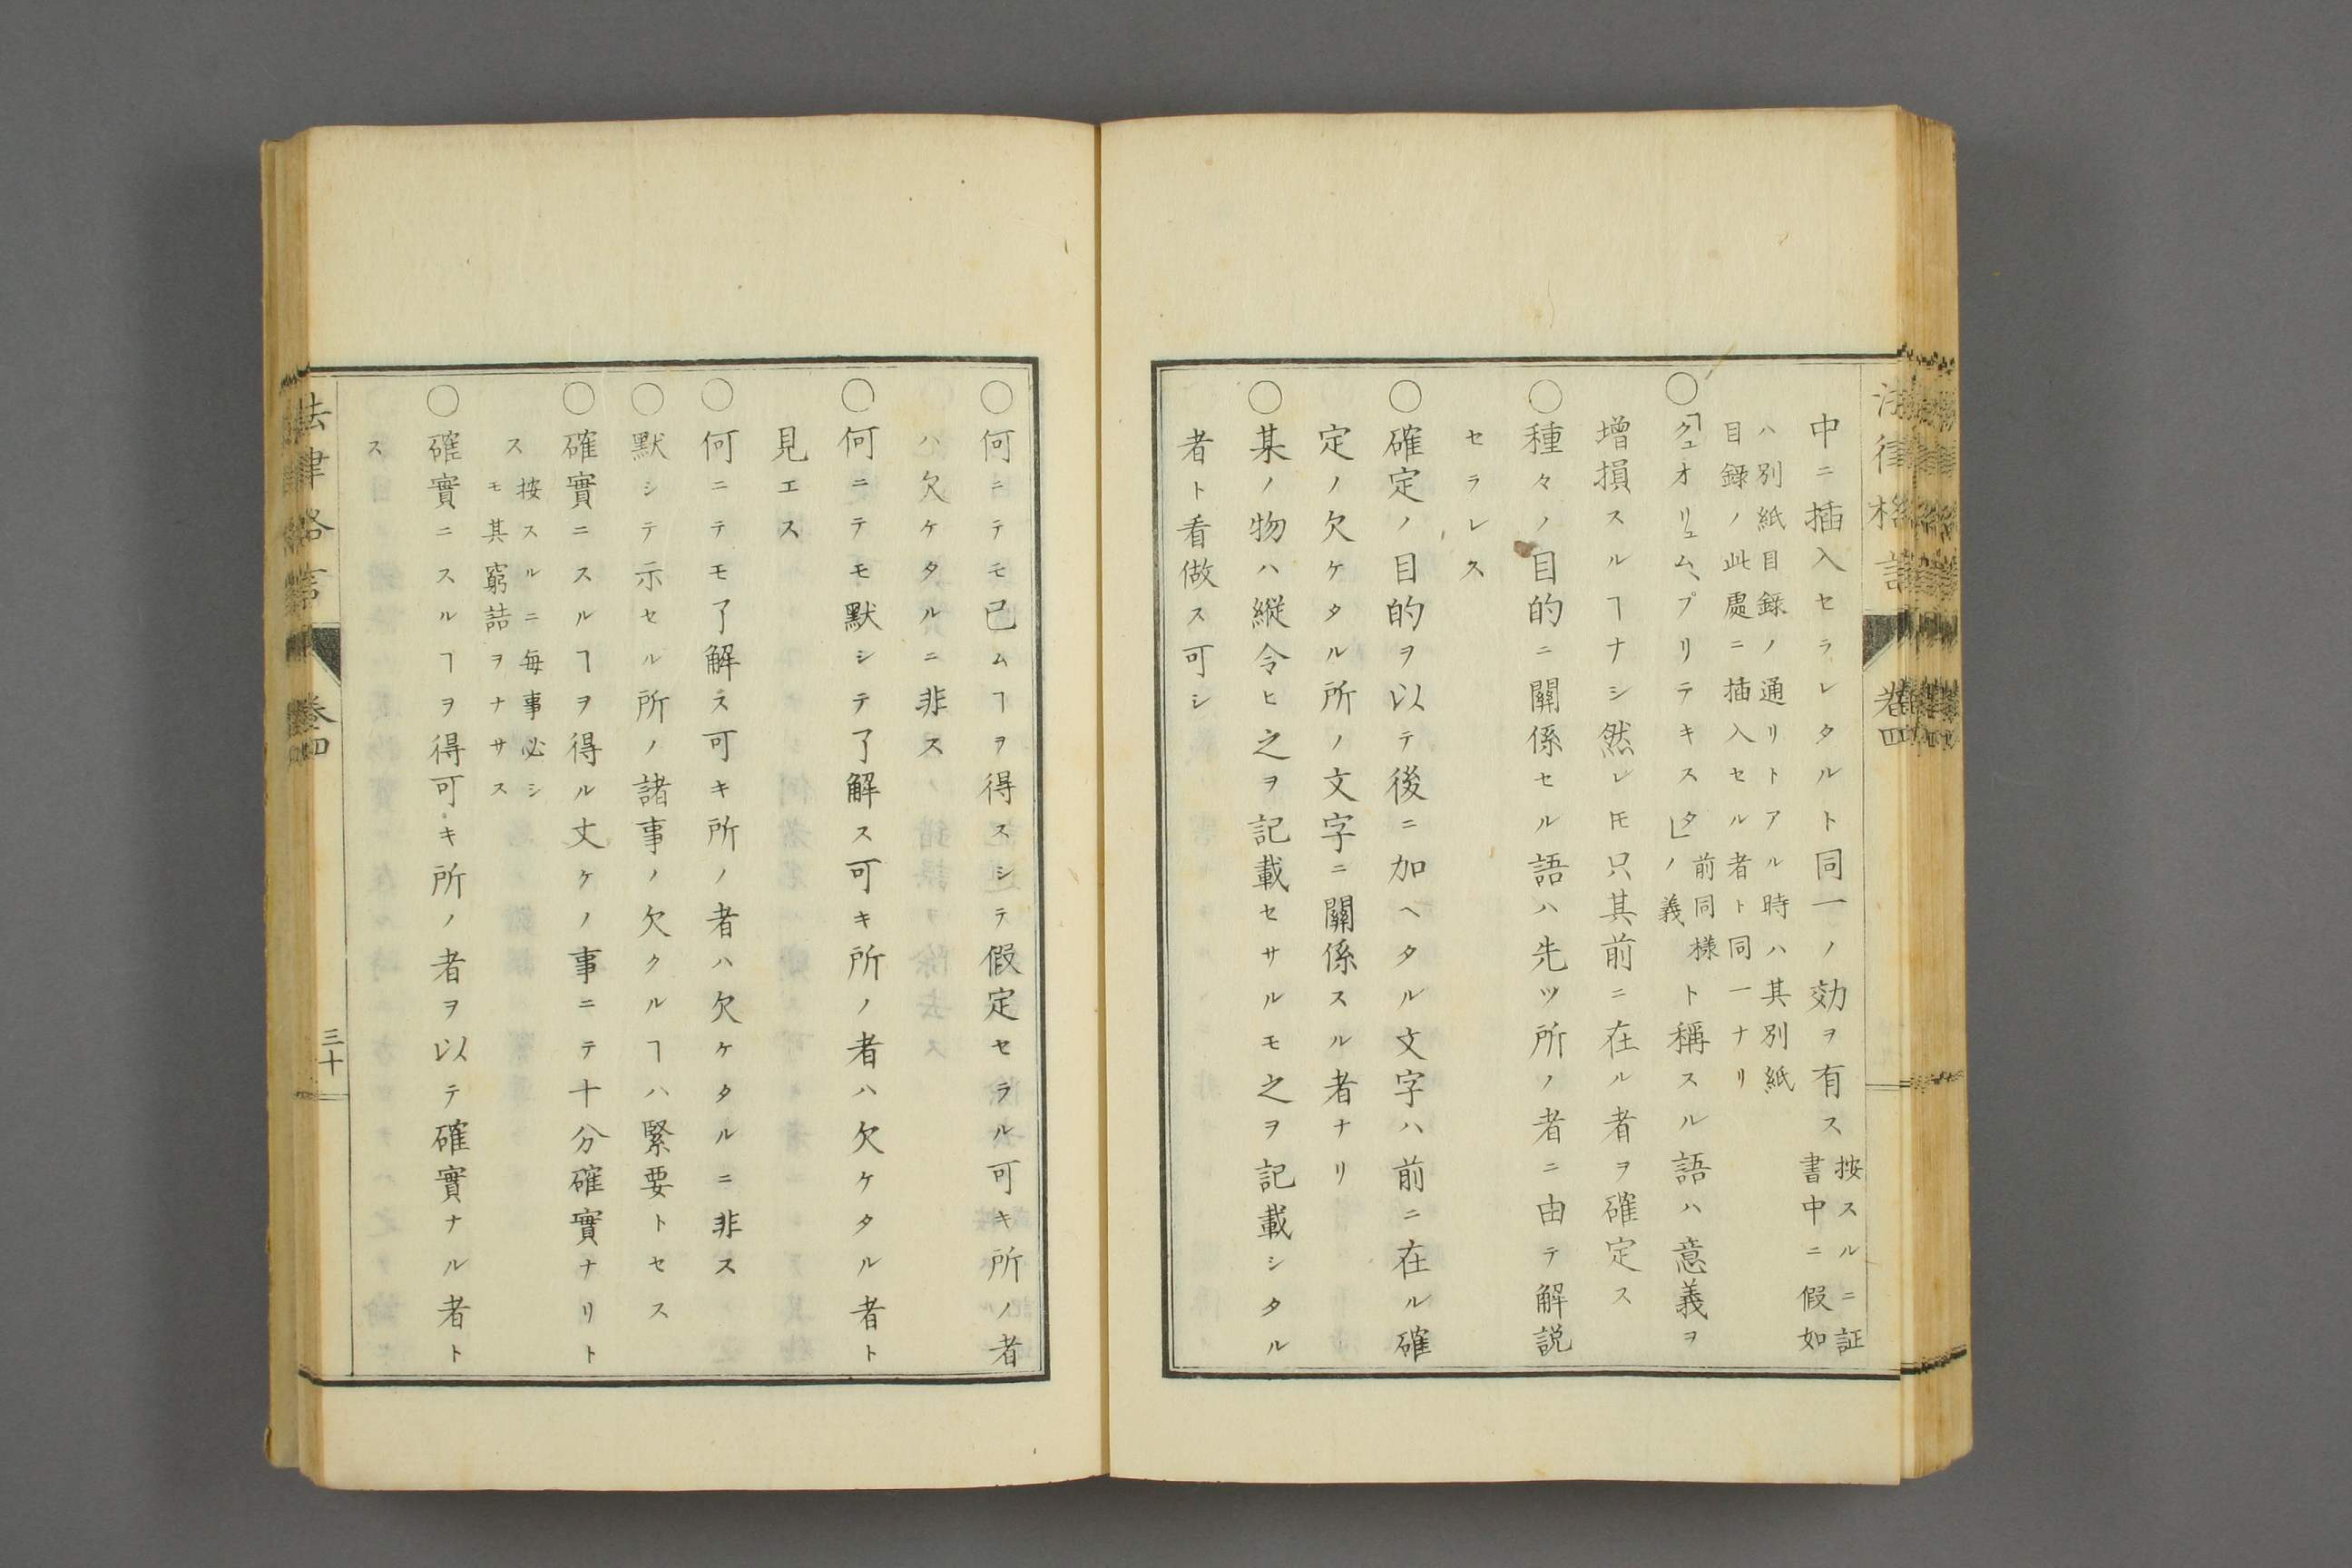 中ニ插入セラレタルト同一ノ効ヲ有ス
按スルニ証
書中ニ假如
ハ別紙目録ノ通リトアル時ハ其別紙
目録ノ此處ニ插入セル者ト同一ナリ
○「クュオリュム、プリテキスタ」ノ義
前同様
ト稱スル語ハ意義ヲ
増損スルヿナシ然レ𪜈只其前ニ在ル者ヲ確定ス
○種々ノ目的ニ關係セル語ハ先ツ所ノ者ニ由テ解説
セラレス
○確定ノ目的ヲ以テ後ニ加ヘタル文字ハ前ニ在ル確
定ノ欠ケタル所ノ文字ニ關係スル者ナリ
○某ノ物ハ縦令ヒ之ヲ記載セサルモ之ヲ記載シタル
者ト看做ス可シ
卷四
○何ニテモ已ムヿヲ得スシテ假定セラル可キ所ノ者
ハ欠ケタルニ非ス
○何ニテモ默シテ了解ス可キ所ノ者ハ欠ケタル者ト
見エス
○何ニテモ了解ス可キ所ノ者ハ欠ケタルニ非ス
○默シテ示セル所ノ諸事ノ欠クルヿハ緊要トセス
○確實ニスルヿヲ得ル丈ケノ事ニテ十分確實ナリト
ス
按スルニ毎事必シ
モ其窮詰ヲナサス
○確實ニスルヿヲ得可キ所ノ者ヲ以テ確實ナル者ト
ス
法律格言
卷四
三十